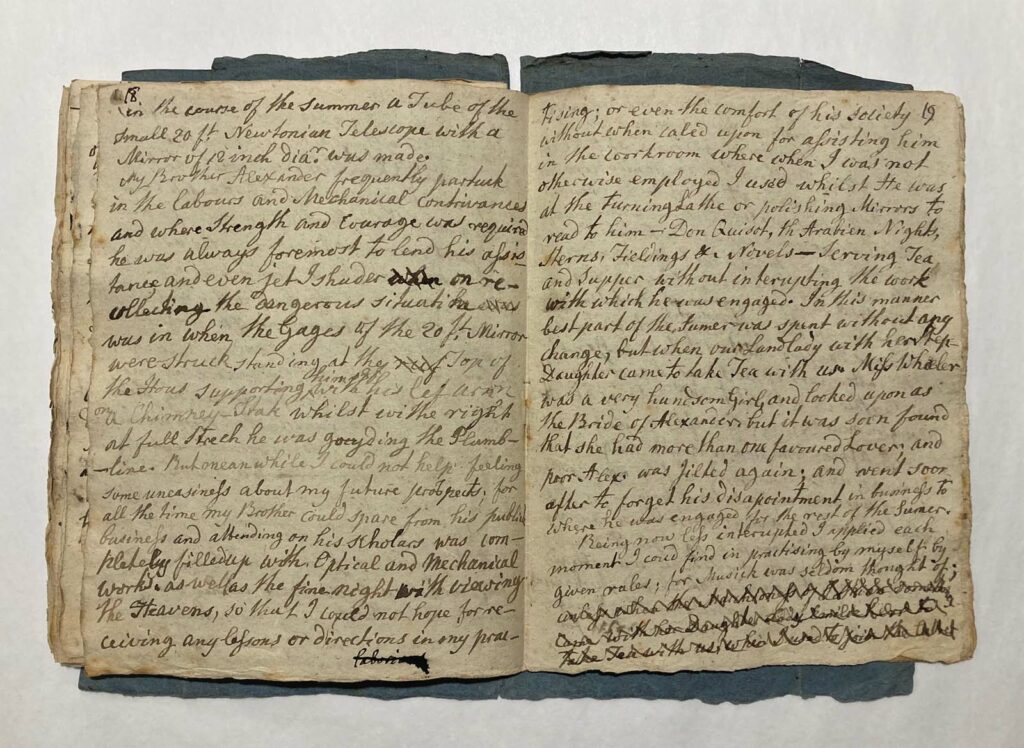 18
in the course of the summer a Tube of the
small 20 ft Newtonian Telescope with a
Mirror of 12 inch diar. was made.
My Brother Alexander frequently partuck
in the Labours and Mechanical Contrivances
and where Strength and Courage was required
he was always foremost to lend his assis-
tance and even jet I shuder on re-
collecting the Dangerous situation
was in when the Gages of the 20 ft. Mirror
were struck standing at the Top of
the Hous supporting himself with his lef arm
on a Chimney-Stak whilst withe right
at full Strech he was gouyding the Plumb-
-line. But meanwhile I could not help feeling
some uneasiness about my future prospects, for
all the time my Brother could spare from his public
business and attending on his scholars was com-
pletely filledup with Optical and Mechanical
works. as well as the fine night with viewing
the Heavens, so that I could not hope for re-
ceiving any lessons or directions in my prac-
tising; or even the comfort of his society 19
without when caled upon for assisting him
in the workroom where when I was not
otherwise employed I used whilst He was
at the turning Lathe or polishing Mirrors to
read to him – Don Quisot, th Arabien Night,
Sterns, Fieldings & Novels – Serving Tea
and Supper without interupting the work
with which he was engaged. In this manner
best part of the Sumer was spent without any
change, but when our Landlady with her Step-
Daughter came to take Tea with us. Miss Wheeler
was a very handsom Girl, and looked upon as
the Bride of Alexander, but it was soon found
that she had more than one favoured Lover, and
poor Alex. was jilted again; and went soon
after to forget his disapointment in business to
where he was engaged for the rest of the Sumer.
Being now less interrupted I applied each
moment I could find in practising by myself by
given rules; for Musick was seldom thought of;
came with her Daughter
take Tea with us, who